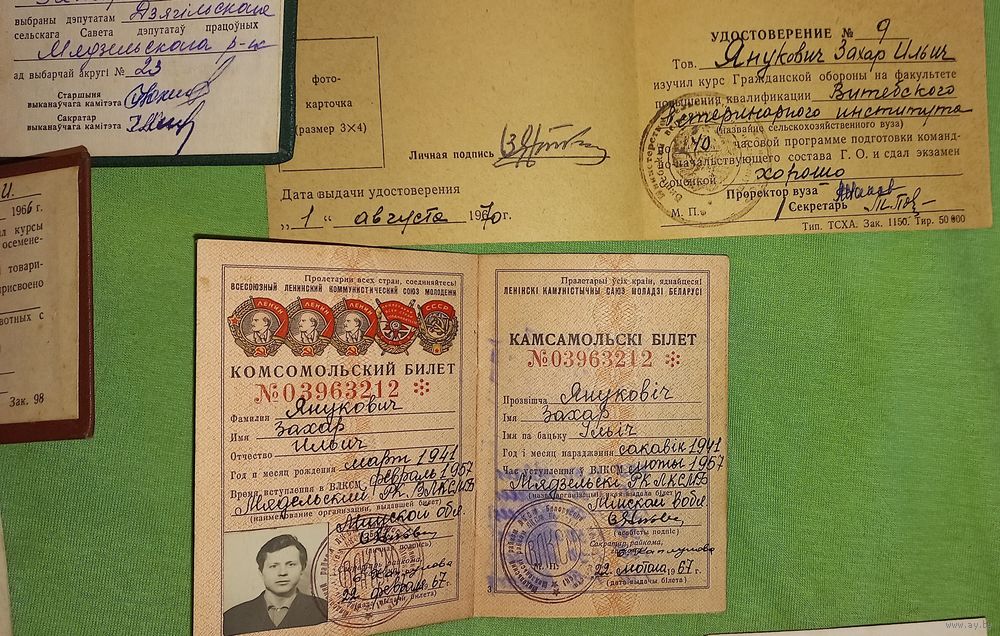 выбраны дэпутатам Дзягільскага
сельскага Савета дэпутатаў працоўных
Мядзельскага р-на
ад выбарчай акругі № 23
Старшыня
выканаўчага камітэта
Сакратар
выканаўчага камітэта
И.
1966 г.
курсы
осемене-
товари-
присвоено
вотных с
Зак. 98
фото-
карточка
(размер 3×4)
Личная подпись
Дата выдачи удостоверения
„ 1 " августа 1970г.
УДОСТОВЕРЕНИЕ № 9
Тов. Янукович Захар Ильич
изучил курс Гражданской обороны на факультете
повышения квалификации Витебского
ветеринарного института
(название сельскохозяйственного вуза)
по 40 часовой программе подготовки команд-
но-начальствующего состава Г. О. и сдал экзамен
с оценкой хорошо
Проректор вуза
М. П. Секретарь
Тип. ТСХА. Зак. 1150. Тир. 50 000
Пролетарии всех стран, соединяйтесь!
ВСЕСОЮЗНЫЙ ЛЕНИНСКИЙ КОММУНИСТИЧЕСКИЙ СОЮЗ МОЛОДЕЖИ
ЛЕНИН ЛЕНИН ЛЕНИН СССР
КОМСОМОЛЬСКИЙ БИЛЕТ
№03963212
Фамилия Янукович
Имя Захар
Отчество Ильич
Год и месяц рождения март 1941
Время вступления в ВЛКСМ февраль 1957
Мядельский РК ЛКСМБ
(наименование организации, выдавшей билет)
Минской обл.
(личная подпись)
Секретарь райкома,
22 февраля 1967г.
(дата выдачи билета)
Пралетарыі ўсіх краін, яднайцеся!
ЛЕНІНСКІ КАМУНІСТЫЧНЫ САЮЗ МОЛАДЗІ БЕЛАРУСІ
КАМСАМОЛЬСКІ БІЛЕТ
№03963212
Прозвішча Януковіч
Імя Захар
Імя па бацьку Ільіч
Год і месяц нараджэння сакавік 1941
Час уступлення ў ВЛКСМ люты 1957
Мядзельскі РК ЛКСМБ
(назва арганізацыі, якая выдала білет)
Мінскай вобл.
(асабісты подпіс)
Сакратар райкома,
М. П.
22 лютага 1967 г.
(дата выдачы білета)
3
www.ay.by